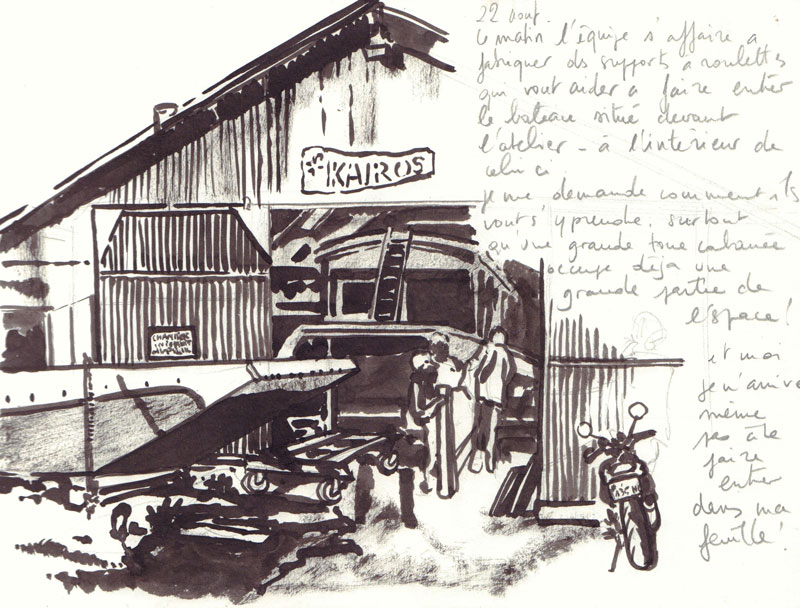 22 aout.
Ce matin l'équipe s'affaire a
fabriquer des supports à roulettes
qui vont aider a faire entrer
le bateau situé devant
l'atelier - à l'intérieur de
celui ci
je me demande comment ils
vont s'y prendre. surtout
qu'une grande toue cabanée
occupe déjà une
grande partie de
l'espace!
et moi
je n'arrive
même
pas à le
faire
entrer
dans ma
feuille!
KAIROS
CHANTIER
INTERDIT
AU PUBLIC